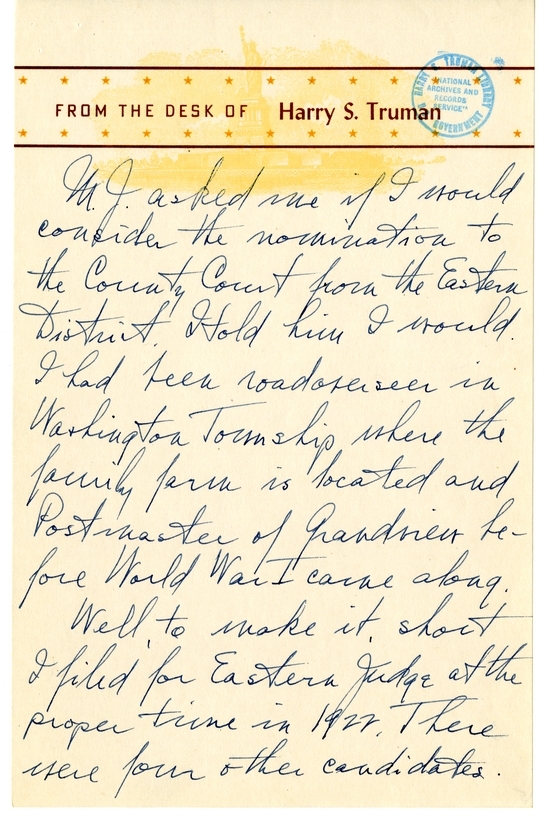 FROM THE DESK OF Harry S. Truman
HARRY S. TRUMAN LIBRARY
"NATIONAL
ARCHIVES AND
RECORDS
SERVICE"
GOVERNMENT
M.J. asked me if I would
consider the nomination to
the County Court from the Eastern
District. I told him I would.
I had been roadoverseer in
Washington Township where the
family farm is located and
Postmaster of Grandview be-
fore World War I came along.
Well, to make it, short
I filed for Eastern Judge at the
proper time in 1922. There
were four other candidates.